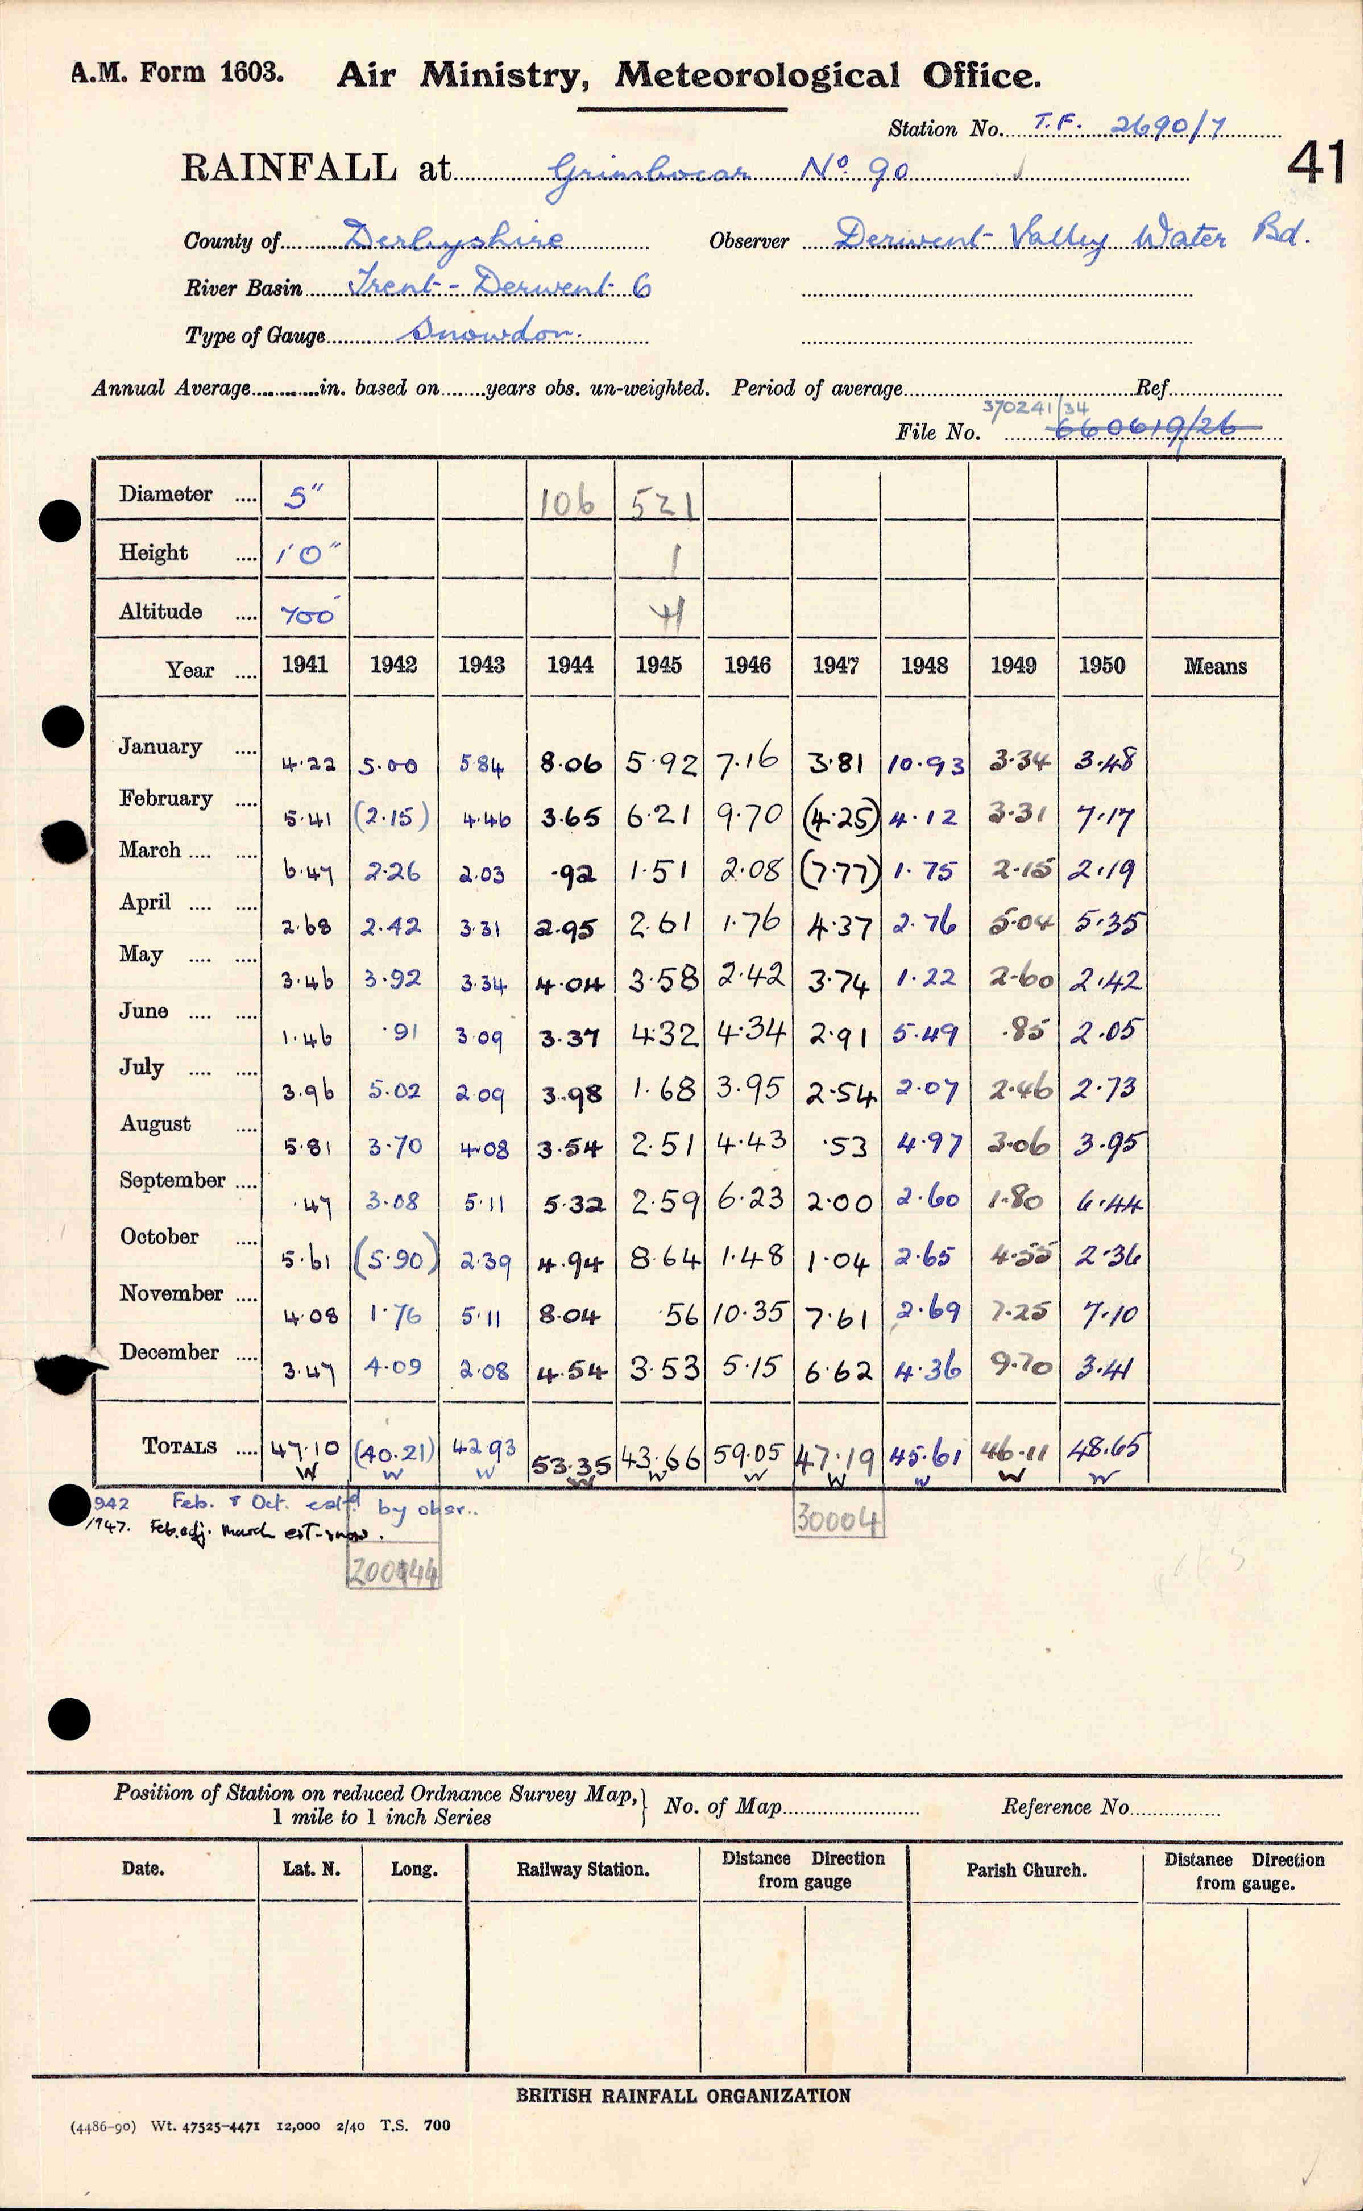 A.M. Form 1603. Air Ministry, Meteorological Office.
Station No. T.F. 2690/7
41
RAINFALL at Grimbocar No. 90
County of Derbyshire Observer Derwent Valley Water Bd.
River Basin Trent - Derwent 6
Type of Gauge Snowdon.
Annual Average in. based on years obs. un-weighted. Period of average Ref
370241/34
File No. 660619/26
Diameter 5" 106 521
Height 1'0" 1
Altitude 700' 41
Year 1941 1942 1943 1944 1945 1946 1947 1948 1949 1950 Means
January 4.22 5.00 5.84 8.06 5.92 7.16 3.81 10.93 3.34 3.48
February 5.41 (2.15) 4.46 3.65 6.21 9.70 (4.25) 4.12 3.31 7.17
March 6.47 2.26 2.03 .92 1.51 2.08 (7.77) 1.75 2.15 2.19
April 2.68 2.42 3.31 2.95 2.61 1.76 4.37 2.76 5.04 5.35
May 3.46 3.92 3.34 4.04 3.58 2.42 3.74 1.22 2.60 2.42
June 1.46 .91 3.09 3.37 4.32 4.34 2.91 5.49 .85 2.05
July 3.96 5.02 2.09 3.98 1.68 3.95 2.54 2.07 2.46 2.73
August 5.81 3.70 4.08 3.54 2.51 4.43 .53 4.97 3.06 3.95
September .47 3.08 5.11 5.32 2.59 6.23 2.00 2.60 1.80 6.44
October 5.61 (5.90) 2.39 4.94 8.64 1.48 1.04 2.65 4.55 2.36
November 4.08 1.76 5.11 8.04 .56 10.35 7.61 2.69 7.25 7.10
December 3.47 4.09 2.08 4.54 3.53 5.15 6.62 4.36 9.70 3.41
TOTALS 47.10 (40.21) 42.93 53.35 43.66 59.05 47.19 45.61 46.11 48.65
W W W W W W W W W W
942 Feb. & Oct. estd. by obsr..
1947. Feb. adj. March est - snow.
30004
200444
Position of Station on reduced Ordnance Survey Map, 1 mile to 1 inch Series No. of Map Reference No.
Date. Lat. N. Long. Railway Station. Distance from gauge Direction Parish Church. Distance Direction from gauge.
BRITISH RAINFALL ORGANIZATION
(4486-90) Wt. 47525-4471 12,000 2/40 T.S. 700